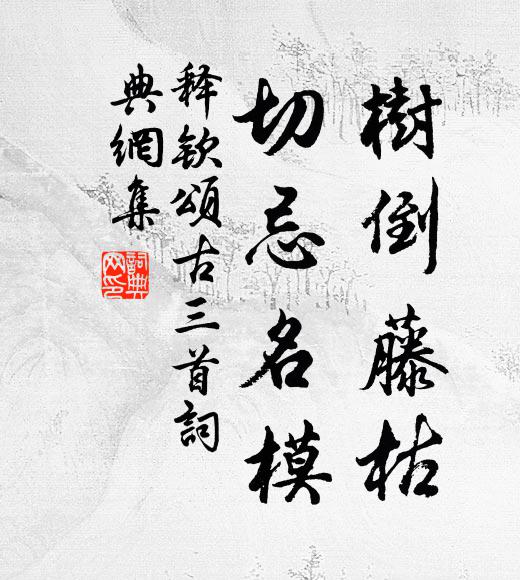 樹倒藤枯
切忌名模
释欽頌古三首詞
典網集
詞典
网印